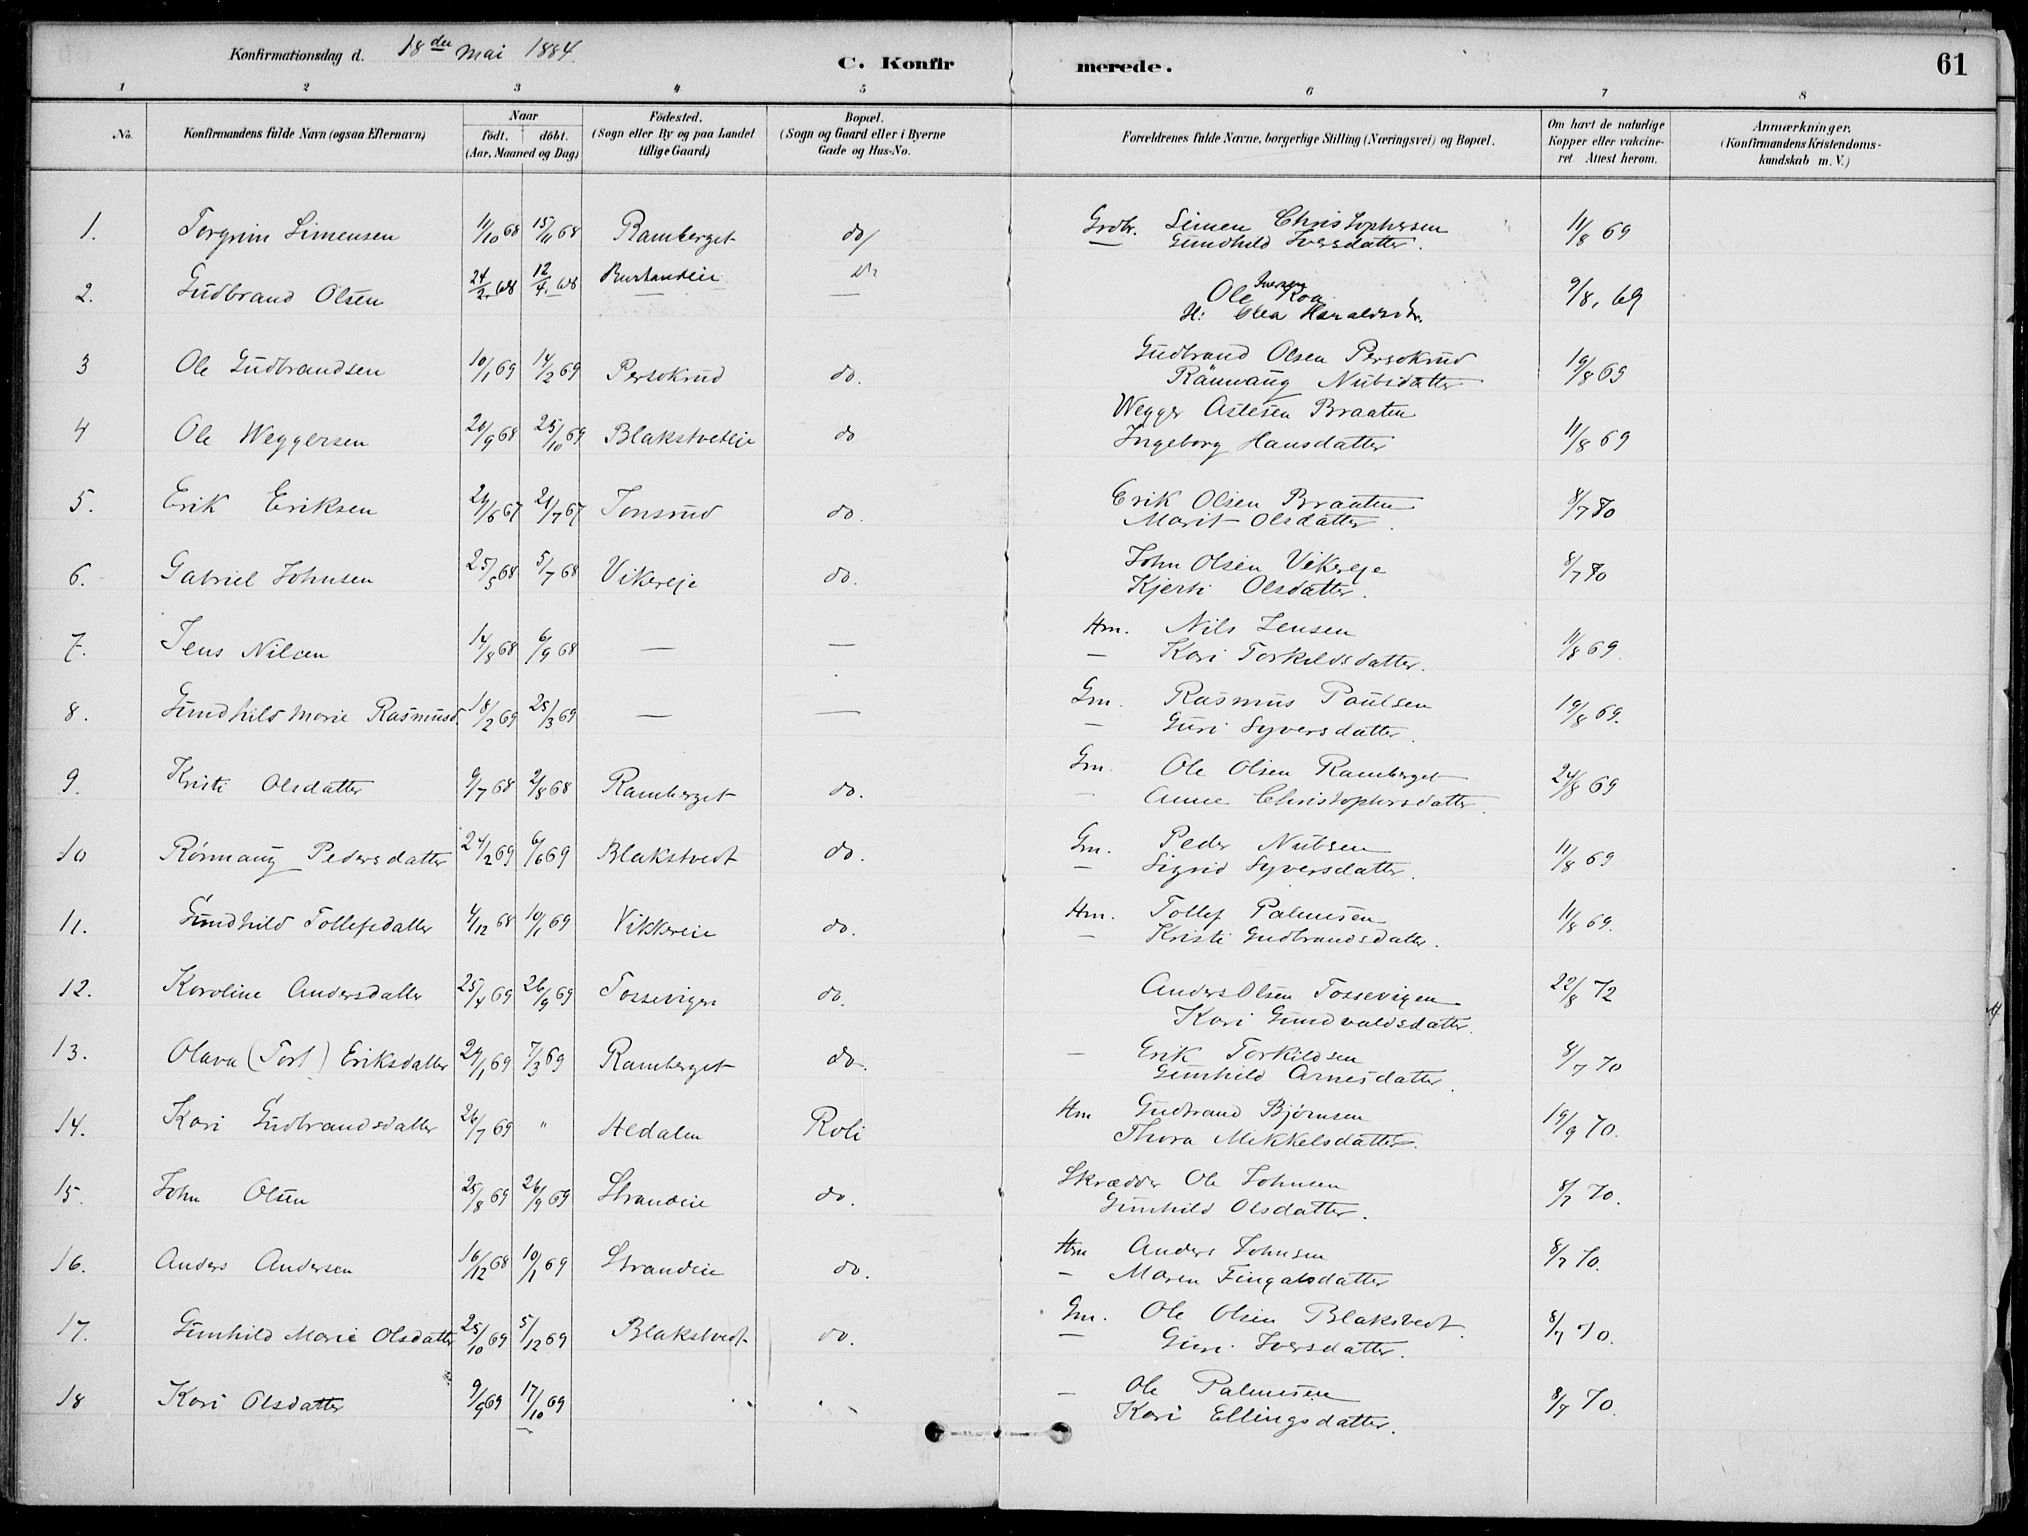 Konfirmationsdag d. 18de Mai 1884.
C. Konfirmerede.
61
1 2 3 4 5 6 7 8
No. Konfirmandens fulde Navn (ogsaa Efternavn) Naar født. døbt. (Aar, Maaned og Dag) Födested. (Sogn eller By og paa Landet tillige Gaard) Bopæl. (Sogn og Gaard eller i Byerne Gade og Hus-No. Forældrenes fulde Navne, borgerlige Stilling (Næringsvei) og Bopæl. Om havt de naturlige Kopper eller vakcineret Attest herom. Anmærkninger. (Konfirmandens Kristendomskundskab m. V.)
1. Torgrim Simensen 11/10 68 15/11 68 Ramberget do/ Grdbr. Simen Christophersen 11/8 69
— Gundhild Iversdatter.
2. Gudbrand Olsen 24/2 68 12/4 68 Ole Iversen Roa 9/8 69
H: Olea Haraldsdtr.
3 Ole Gudbrandsen 10/1 69 14/2 69 Persokrud do. Gudbrand Olsen Persokrud 19/8 69
Rännaug Nubsdatter
4 Ole Weggersen 20/9 68 25/10 69 Blakstveteie do Wegger Astesen Braaten 11/8 69
Ingeborg Hansdatter
5. Erik Eriksen 24/6 67 21/7 67 Tonsrud do. Erik Olsen Braaten 8/7 80
Marit Olsdatter.
6. Gabriel Johnsen 25/5 68 5/7 68 Vikereje do. John Olsen Vikereje 8/7 70
Kjersti Olsdatter.
7. Jens Nilsen 14/8 68 6/9 68 — — Hm. Nils Jensen 11/8 69.
— Kari Torkildsdatter.
8. Gundhild Marie Rasmusd. 18/2 69 25/3 69 — — Gm. Rasmus Paulsen 19/8 69.
— Guri Syversdatter.
9. Kristi Olsdatter 9/7 68 2/8 68 Ramberget do. Gm. Ole Olsen Ramberget 24/8 69
— Anne Christophersdatter.
10 Rønnaug Pedersdatter 24/2 69 6/6 69 Blakstvedt do. Gm. Peder Nubsen 11/8 69
— Sigrid Syversdatter.
11. Gundhild Tollefsdatter 4/12 68 10/1 69 Vikkereie do. Hm. Tollef Palmesen 11/8 69.
— Kristi Gudbrandsdatter.
12. Karoline Andersdatter 25/4 69 26/9 69 Tossevigen do. Anders Olsen Tossevigen 22/8 72
Kari Gundvaldsdatter.
13. Olava (Torf) Eriksdatter 29/1 69 7/3 69 Ramberget do. — Erik Torkildsen 8/7 70
Gunhild Arnesdatter.
14. Kari Gudbrandsdatter 26/7 69 " Hedalen Roli Hm Gudbrand Bjørnsen 19/9 70.
Thora Mikkelsdatter.
15. John Olsen 25/8 69 26/9 69 Strandeie do. Skrædder Ole Johnsen 8/7 70.
Gunhild Olsdatter.
16. Anders Andersen 16/12 68 10/1 69 Strandeie do. Hm Anders Johnsen 8/7 70.
— Maren Fingalsdatter
17. Gunhild Marie Olsdatter 25/10 69 5/12 69 Blakstvedt do. Gm. Ole Olsen Blakstvedt. 8/7 70.
— Guri Iversdatter.
18 Kari Olsdatter 9/9 69 17/10 69 — Ole Palmesen 8/7 70.
Kari Ellingsdatter.